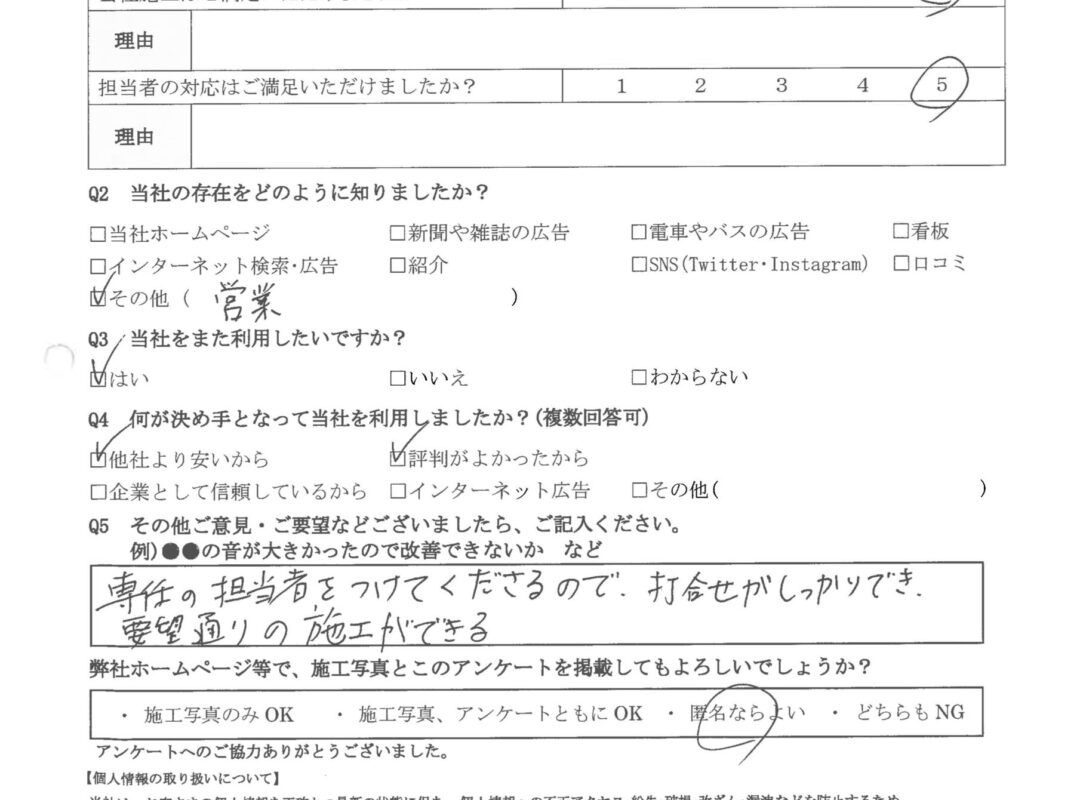 理由
担当者の対応はご満足いただけましたか？ 1 2 3 4 5
理由
Q2 当社の存在をどのように知りましたか？
□当社ホームページ □新聞や雑誌の広告 □電車やバスの広告 □看板
□インターネット検索・広告 □紹介 □SNS(Twitter・Instagram) □口コミ
☑その他（ 営業 ）
Q3 当社をまた利用したいですか？
☑はい □いいえ □わからない
Q4 何が決め手となって当社を利用しましたか？(複数回答可)
☑他社より安いから ☑評判がよかったから
□企業として信頼しているから □インターネット広告 □その他( )
Q5 その他ご意見・ご要望などございましたら、ご記入ください。
例)●●の音が大きかったので改善できないか など
専任の担当者をつけてくださるので、打合せがしっかりでき、
要望通りの施工ができる
弊社ホームページ等で、施工写真とこのアンケートを掲載してもよろしいでしょうか？
・ 施工写真のみ OK ・ 施工写真、アンケートともに OK ・ 匿名ならよい ・ どちらも NG
アンケートへのご協力ありがとうございました。
【個人情報の取り扱いについて】